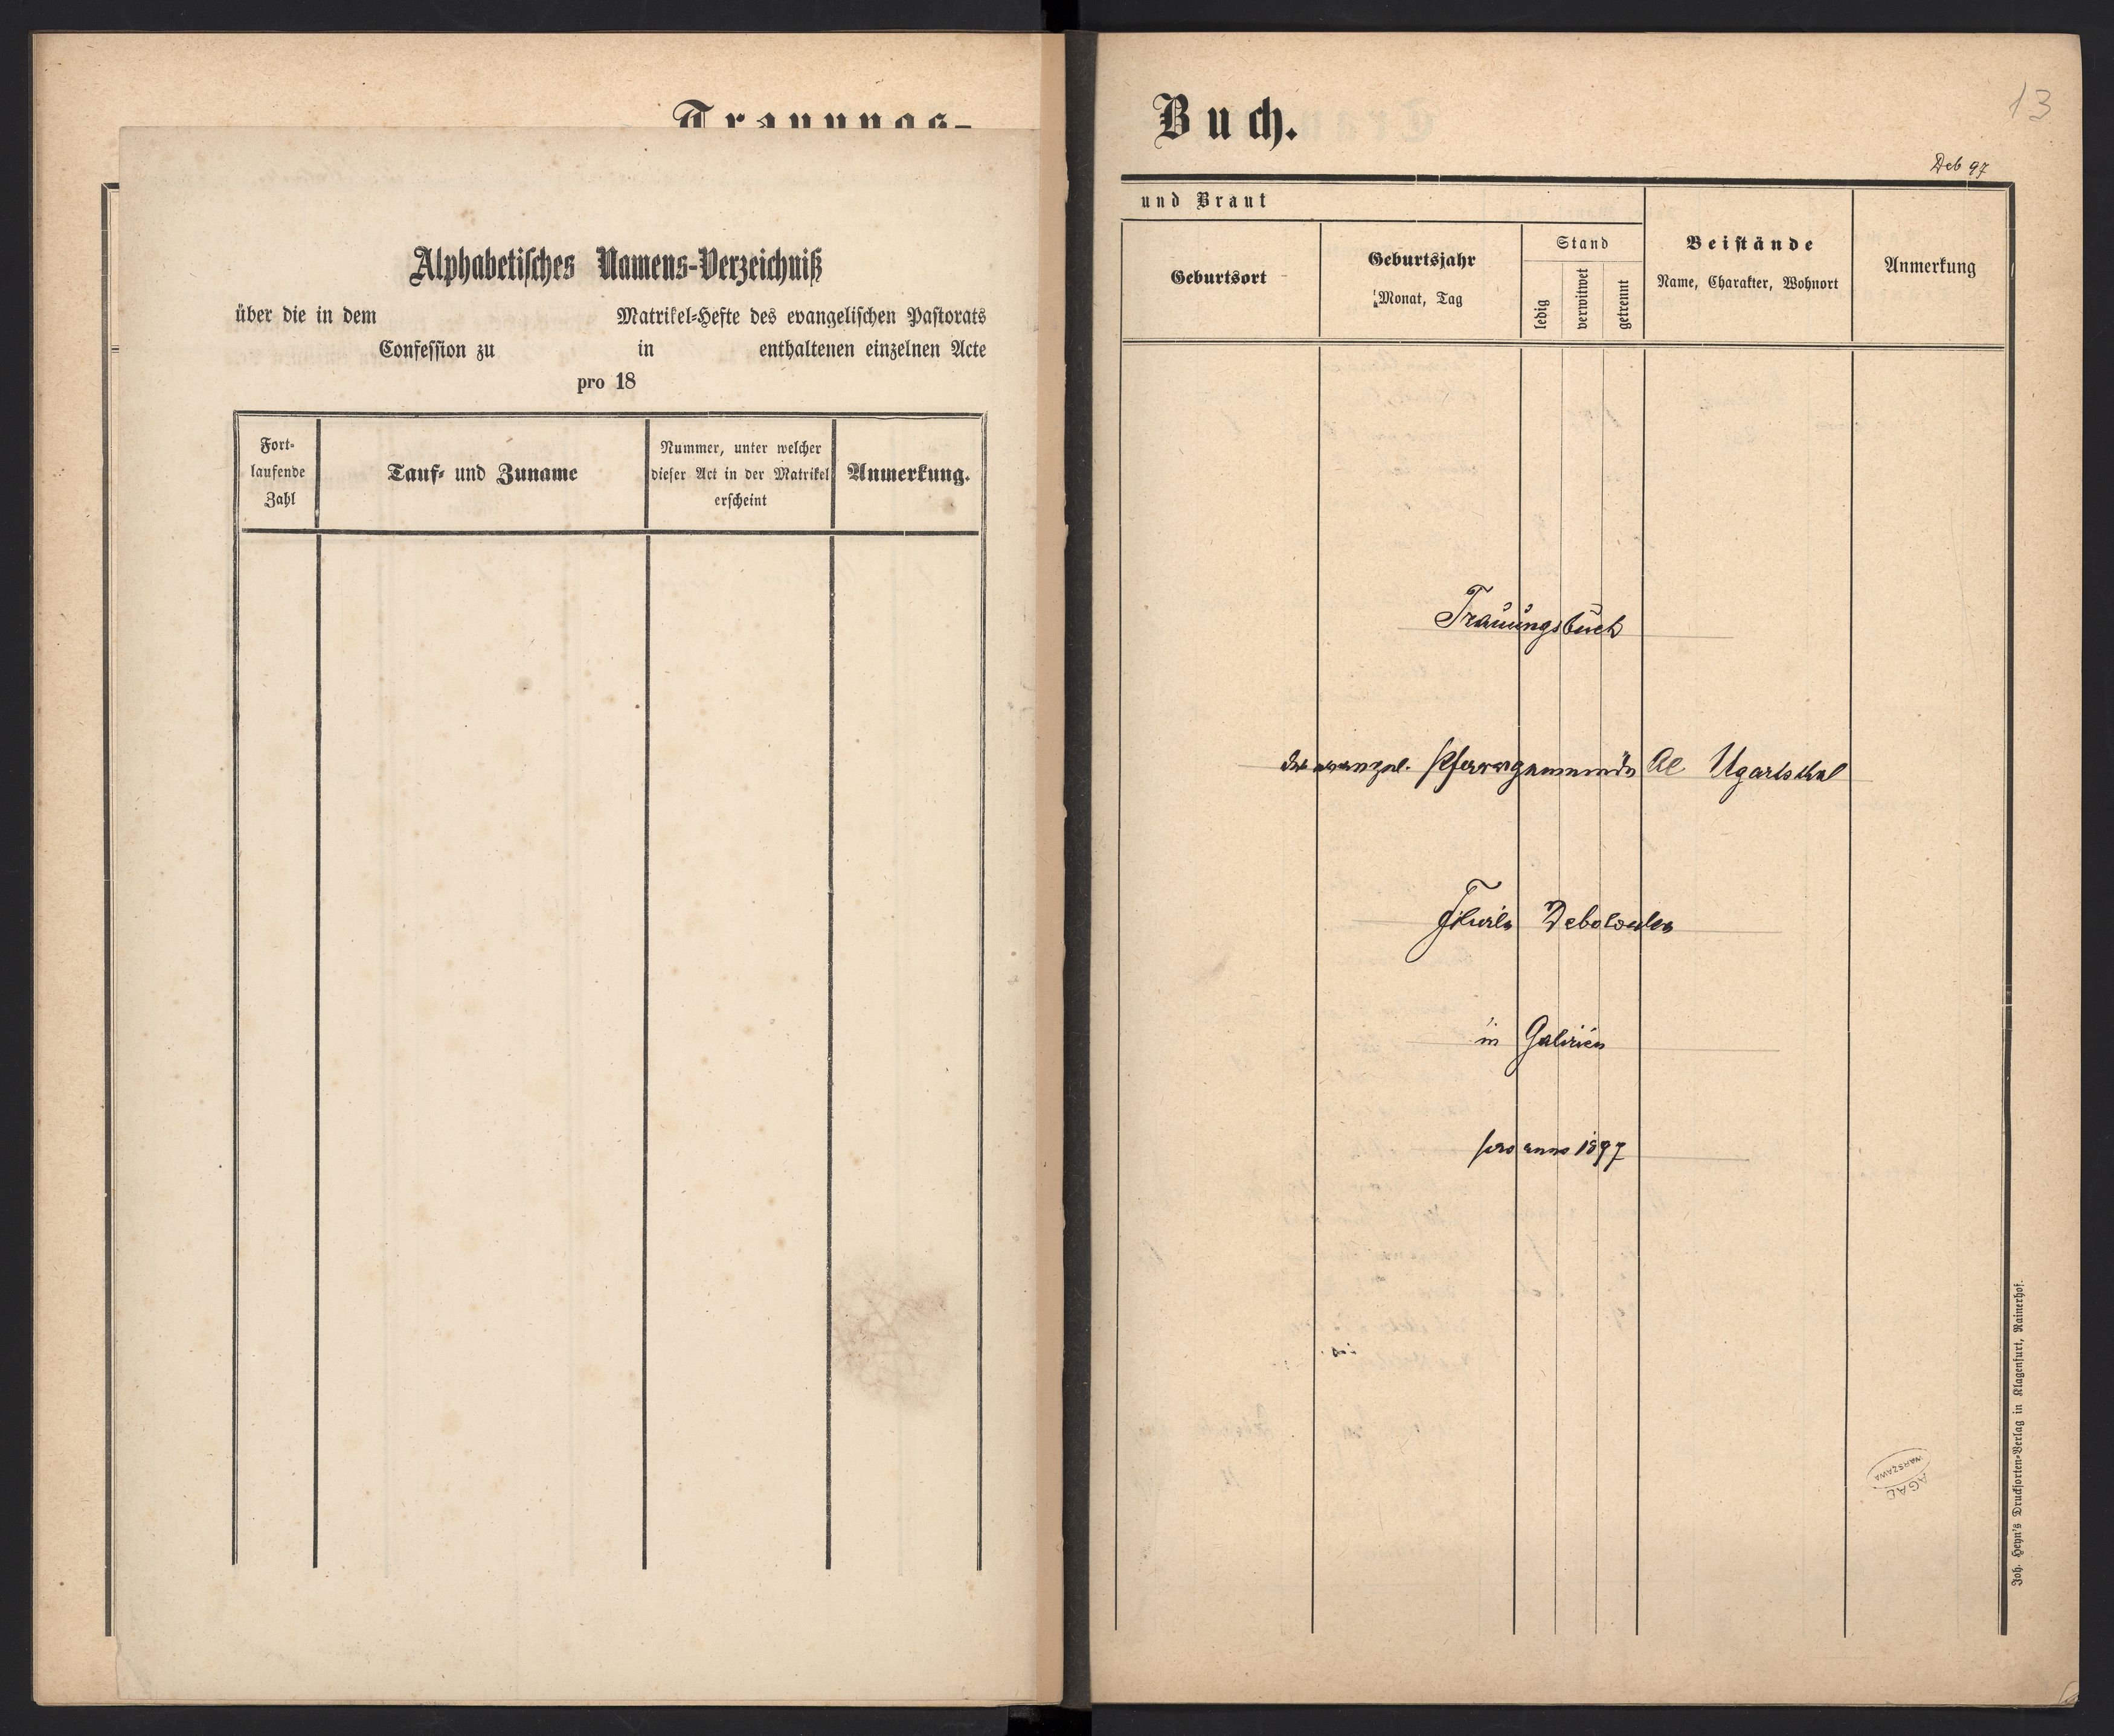 Trauungs-
Alphabetisches Namens-Verzeichniß
über die in dem Matrikel-Hefte des evangelischen Pastorats
Confession zu in enthaltenen einzelnen Acte
pro 18
Fort-
laufende
Zahl
Tauf- und Zuname
Nummer, unter welcher
dieser Act in der Matrikel
erscheint
Anmerkung.
Buch.
13
Deb 97
und Braut
Geburtsort
Geburtsjahr
Monat, Tag
Stand
ledig
verwitwet
getrennt
Beistände
Name, Charakter, Wohnort
Anmerkung
Trauungsbuch
der evangel. Pfarrgemeinde Ugartsthal
Filiale Debolowka
in Galizien
pro anno 1897
AGAD
WARSZAWA
Joh. Heyn's Drucksorten-Verlag in Klagenfurt, Rainerhof.